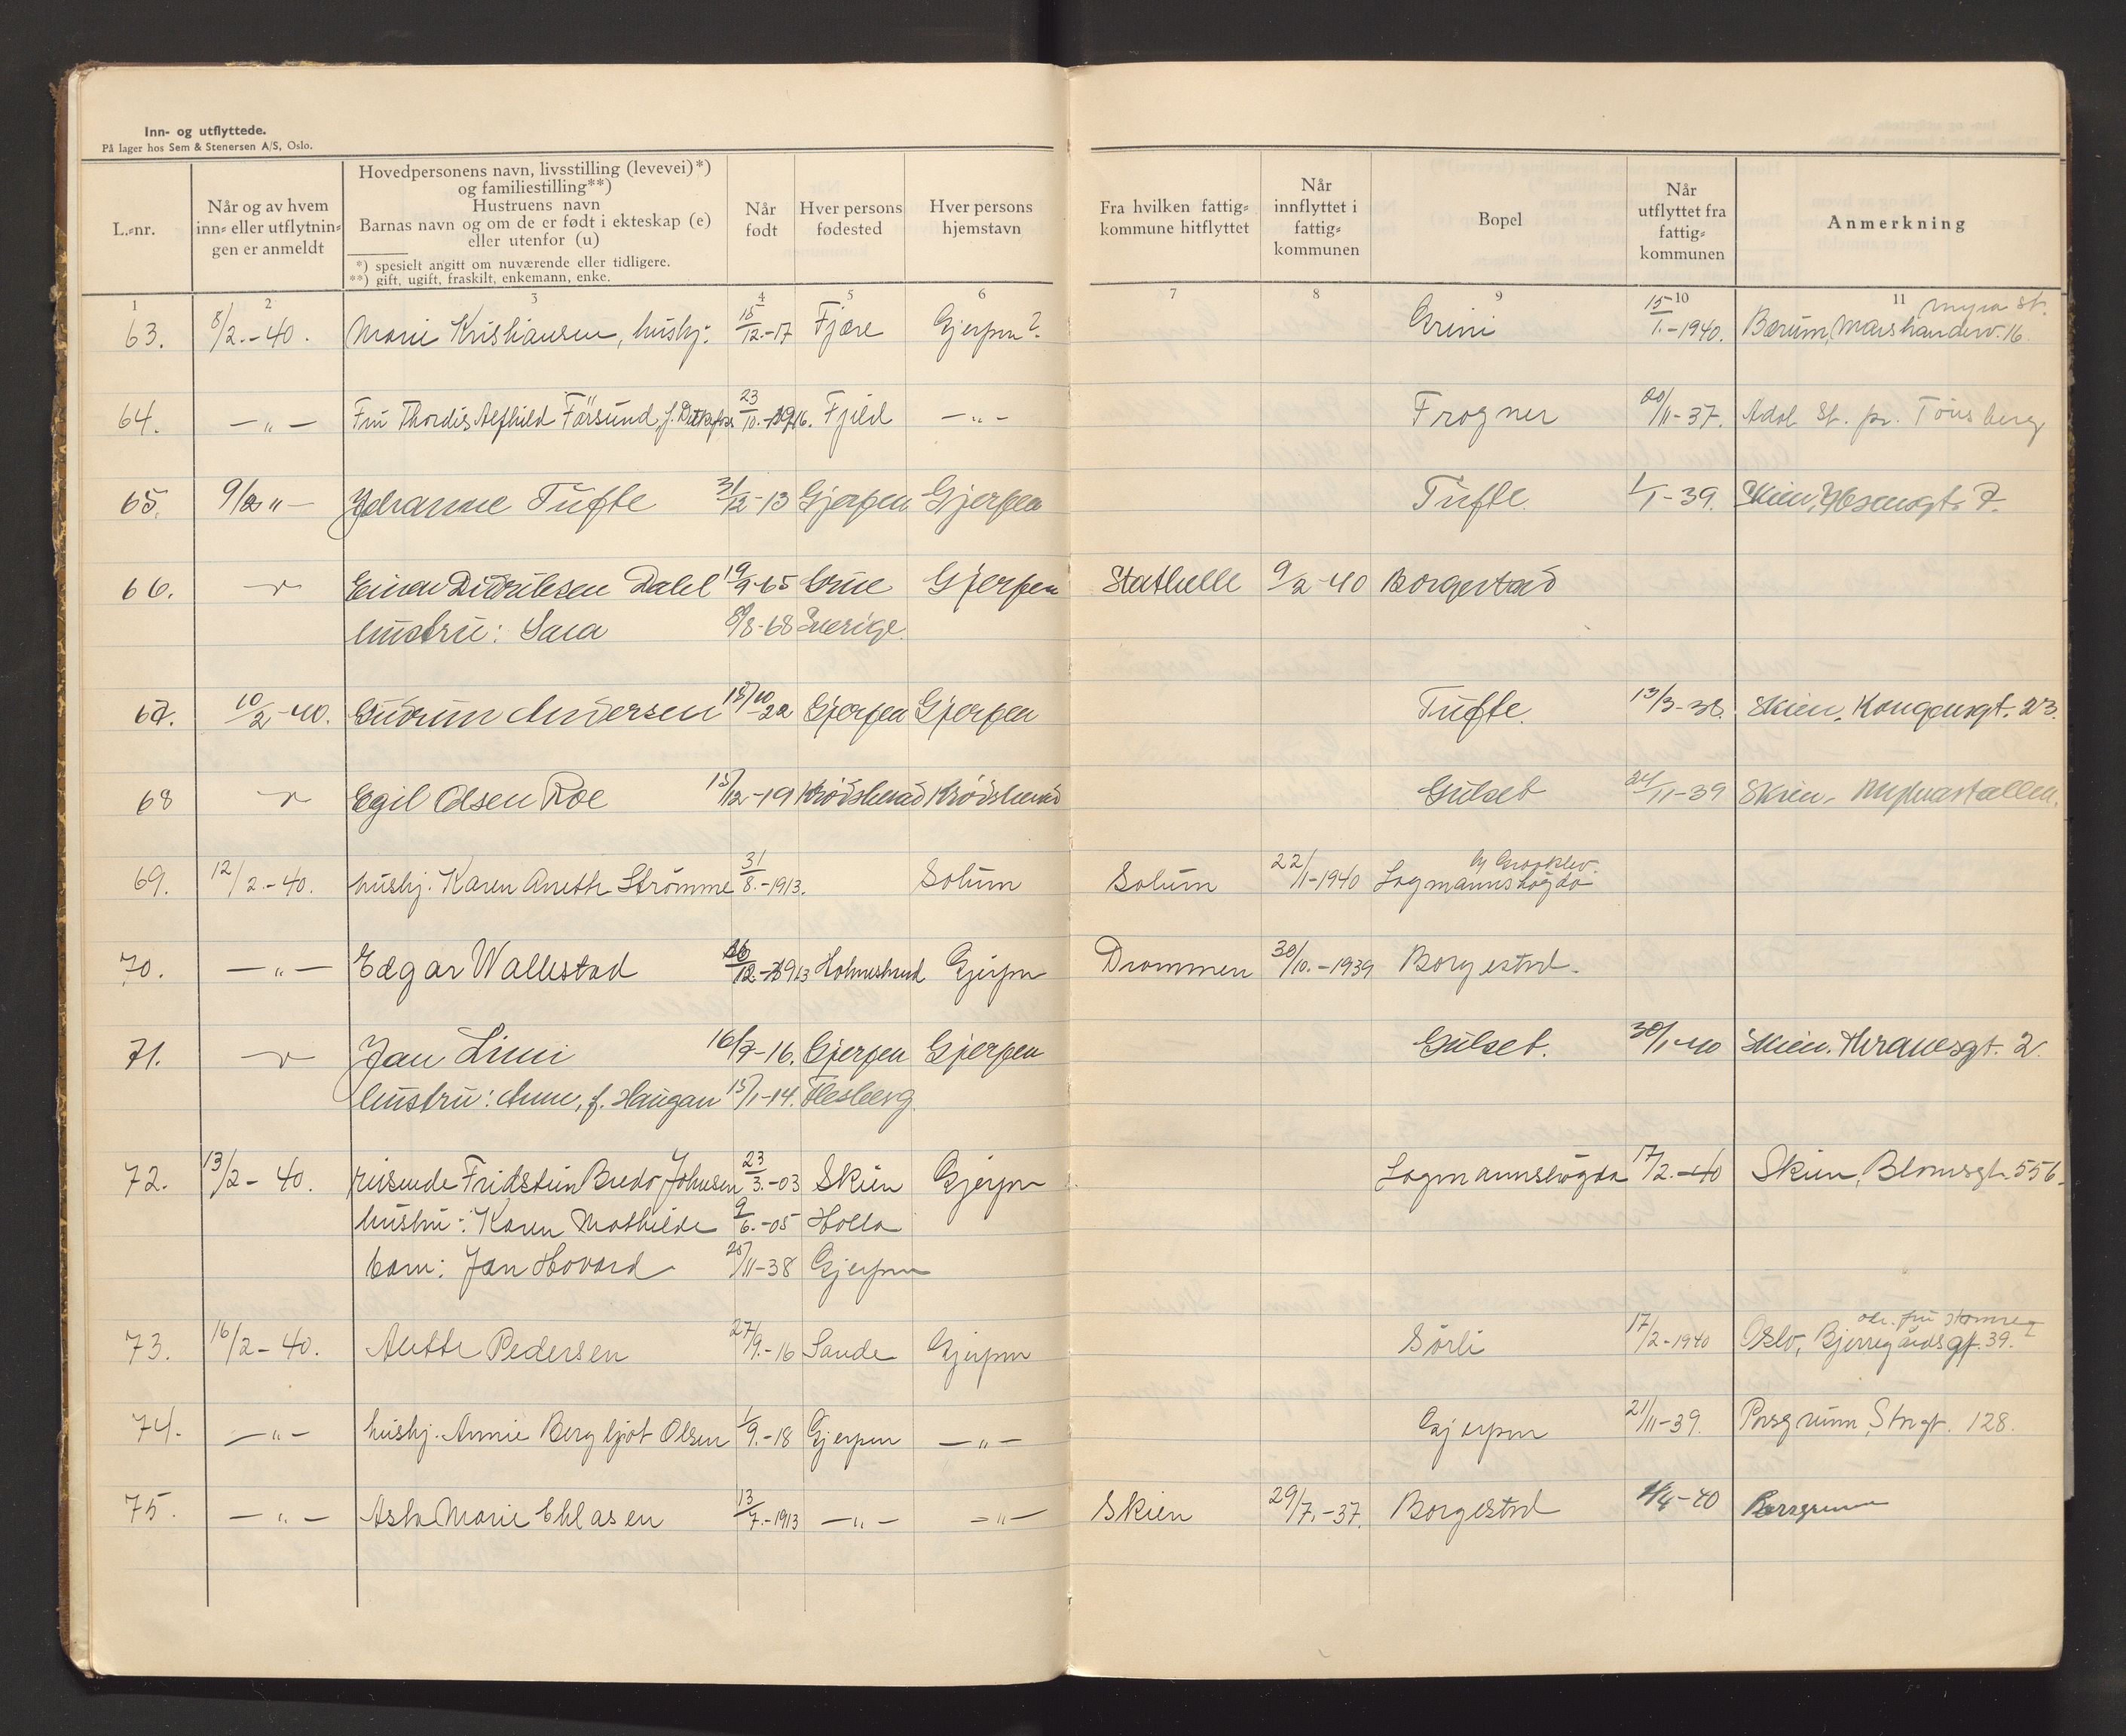 Inn- og utflyttede.
På lager hos Sem & Stenersen A/S, Oslo.
L.-nr.
Når og av hvem inn- eller utflytningen er anmeldt
Hovedpersonens navn, livsstilling (levevei)*) og familiestilling**)
Hustruens navn
Barnas navn og om de er født i ekteskap (e) eller utenfor (u)
*) spesielt angitt om nuværende eller tidligere.
**) gift, ugift, fraskilt, enkemann, enke.
Når født
Hver persons fødested
Hver persons hjemstavn
Fra hvilken fattigkommune hitflyttet
Når innflyttet i fattigkommunen
Bopel
Når utflyttet fra fattigkommunen
Anmerkning
1 2 3 4 5 6 7 8 9 10 11
myra st.
63. 8/2.-40. Marie Kristiansen, hushj. 12.-17 Fjære Gjerpen? Grini 15/1.-1940. Bærum, 16.
64. -„- Fru Thordis Alfhild Førsund, f. 23/10.-1916. Fjeld -„- Frogner 20/11-37. Adal St. pr. Tønsberg
65. 9/2 „- Johanne Tufte 31/12-13 Gjerpen Gjerpen Tufte. 1/1-39. Skien, Ibsensgt. 7.
66. -„- Einar Didriksen Dahl 19/9-65 Gjerpen Stathelle 9/2-40 Borgestad
hustru: Sara 8-68 Sverige.
67. 10/2-40. Gudrun Andersen 15/10-22 Gjerpen Gjerpen Tufte. 13/3-38. Skien, Kongensgt. 23.
68 -„- Egil Olsen Roe 15/12-19 Krødsherad Krødsherad Gulset 24/11-39 Skien,
by Grasklev.
69. 12/2.-40. hushj. Karen Anette Strømme 31/8.-1913. Solum Solum 22/1-1940 Lagmannshøgda
70. -„- Edgar Wallestad 26/12.-1913 Holmestrand Gjerpen Drammen 30/10.-1939 Borgestad.
71. -„- Jan Limi 16/7-16. Gjerpen Gjerpen Gulset. 30/1-40 Skien. Thranesgt. 2.
hustru: Anne, f. Haugan 15/1-14. Flesberg.
72. 13/2-40. reisende Fridstein Bredo Johnsen 23/3.-03 Skien Gjerpen Lagmannshøgda 17/2.-40 Skien, Blomsgt. 556.
hustru: Karen Mathilde 9/6.-05 Holla
barn: Jan Hovard 25/11-38 Gjerpen
73. 16/2-40. Alette Pedersen 27/9.-16 Sande Gjerpen Sørli 17/2-1940 Oslo, Bjerregårdsgt. 39.
74. -„- hushj. Annie Bergljot Olsen 1/9.-18 Gjerpen -„- Gjerpen 21/11-39. Porsgrunn, Storgt. 128.
75. -„- Asta Marie Eliasen 13/7.-1913 -„- -„- Skien 29/7.-37. Borgestad 1/4-40 Porsgrunn